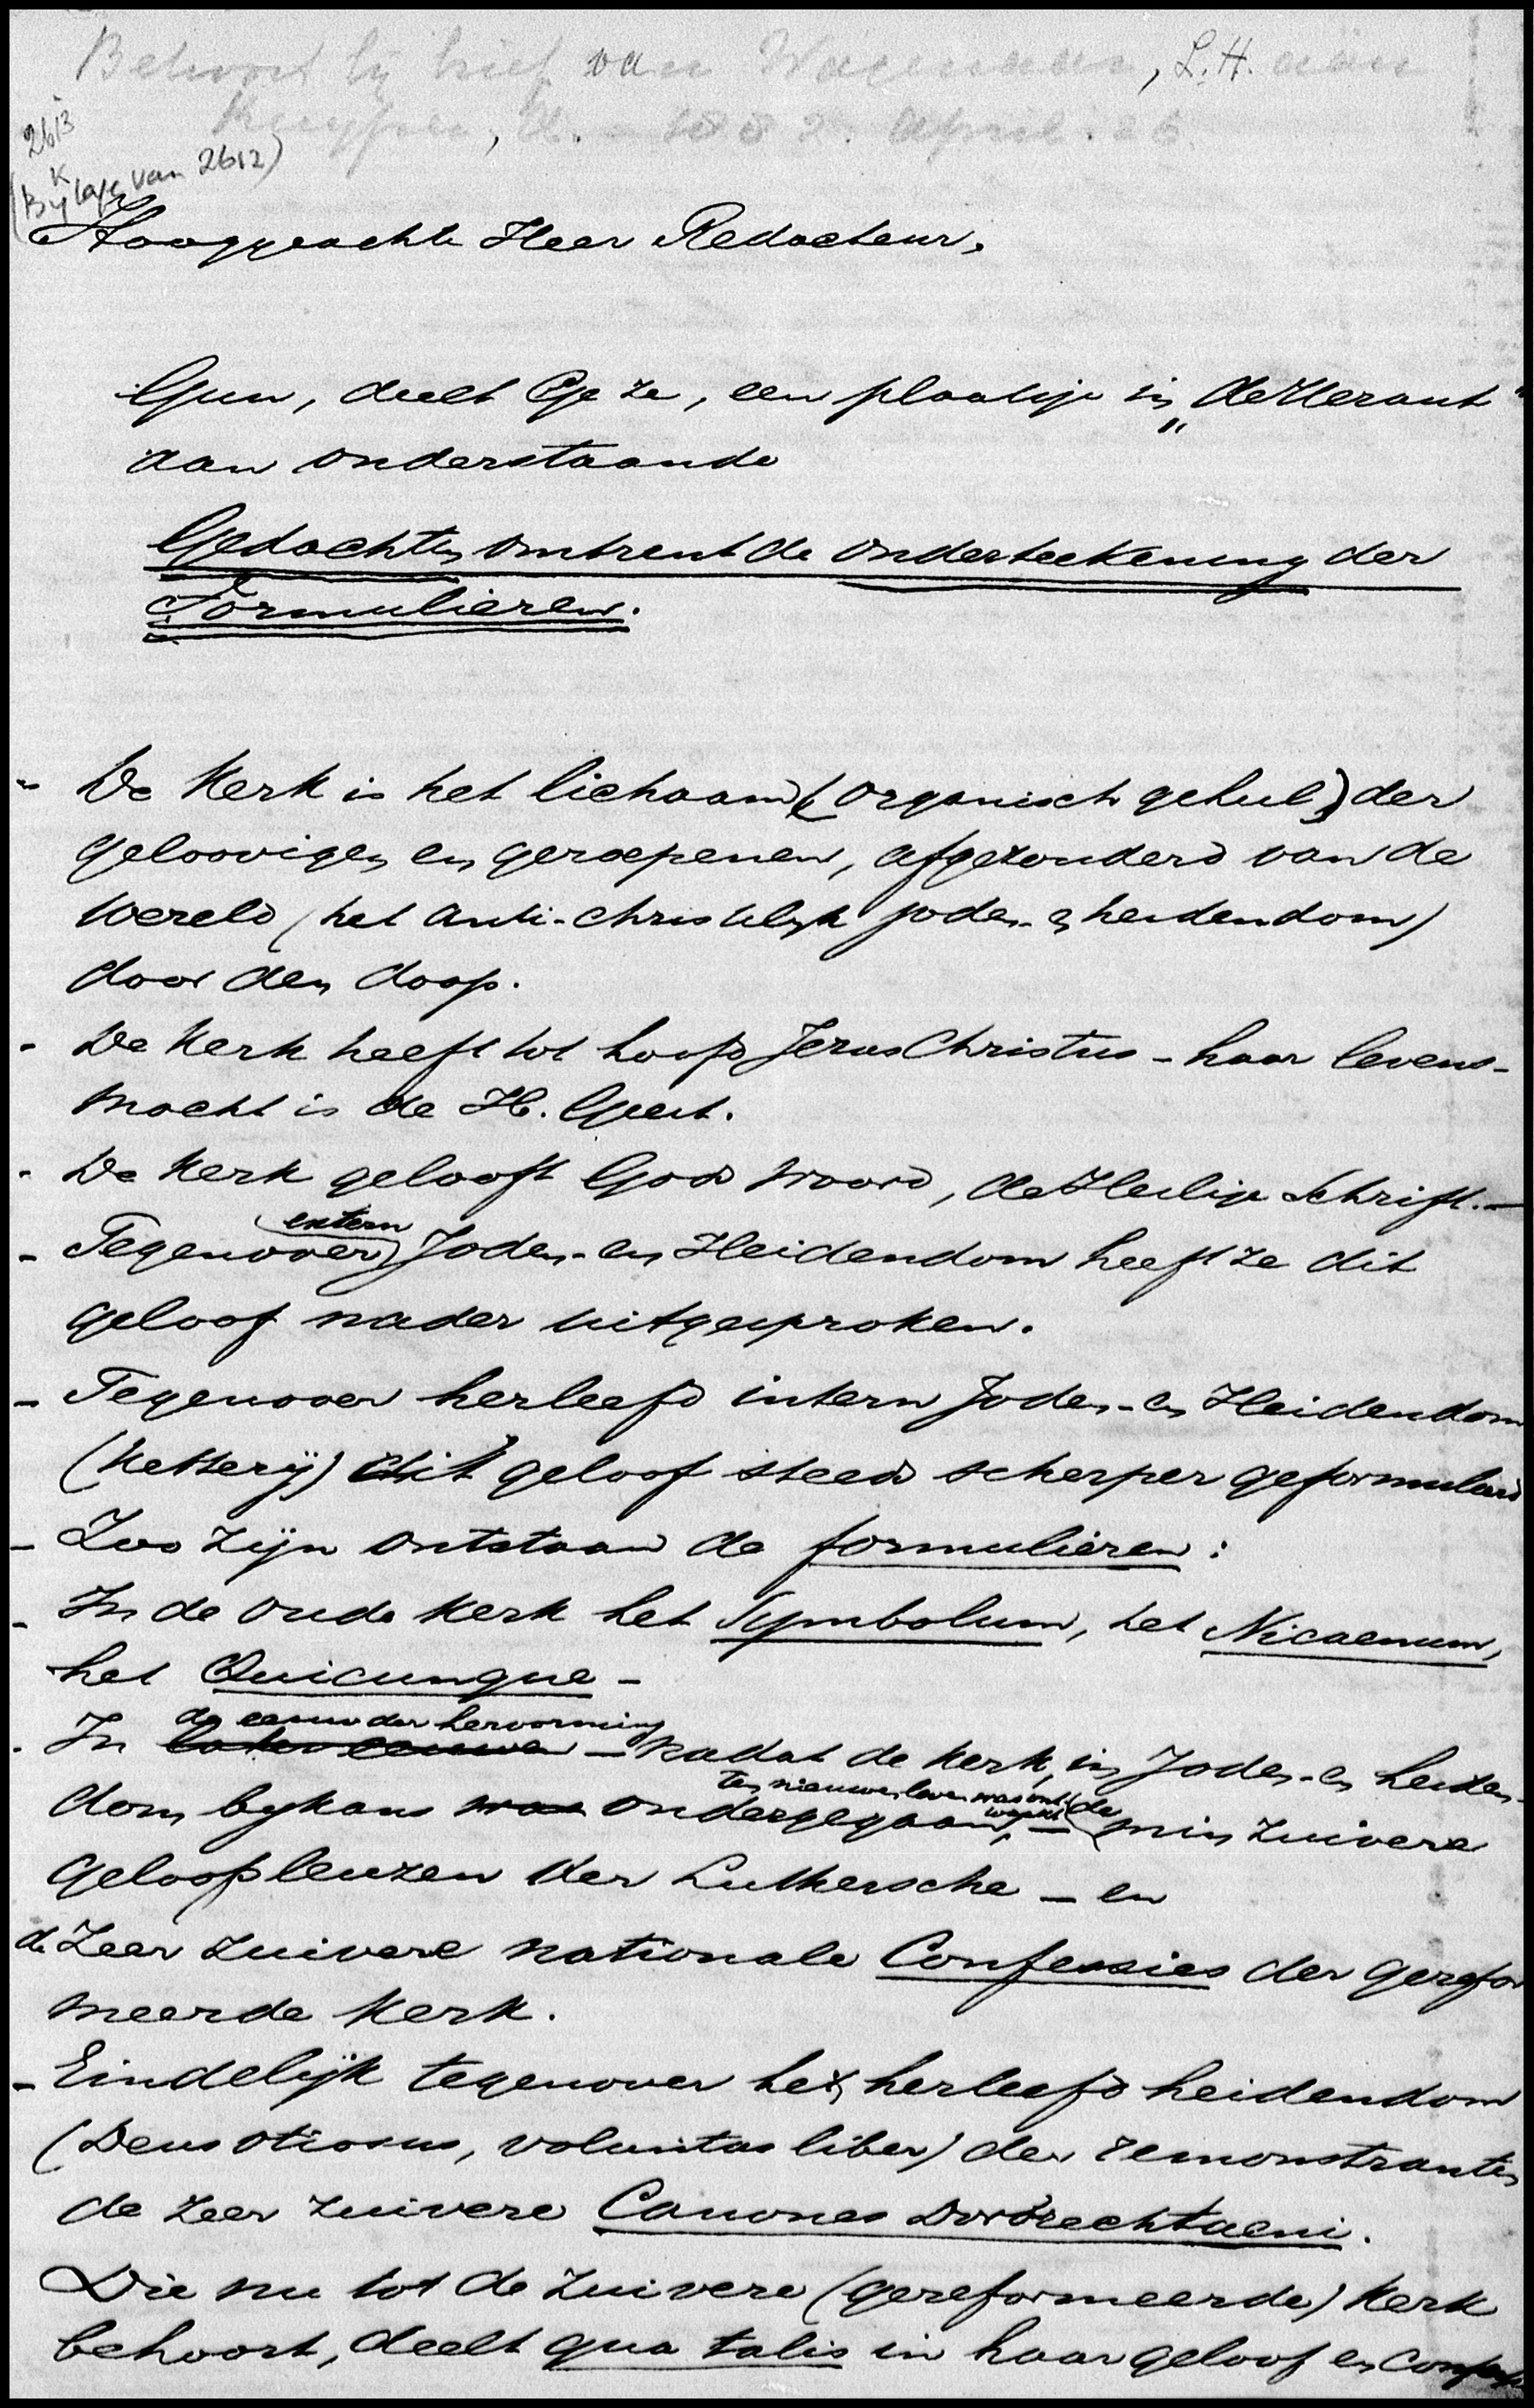 Behoort bij brief van Wagenaar, L.H. aan
Kuyper, A. - 1882 April. 26
2613
(Bijlage van 2612)
K
Hooggeachte Heer Redacteur,
Gun, deelt Ge ze, een plaatsje in „de Heraut"
aan onderstaande
Gedachten omtrent de onderteekening der
Formulieren.
- De Kerk is het lichaam (organisch geheel) der
geloovigen en geroepenen, afgezonderd van de
wereld (het anti-christelijk joden- en heidendom)
door den doop.
- De Kerk heeft tot hoofd Jezus Christus - haar levens-
macht is de H. Geest.
- De Kerk gelooft Gods Woord, de Heilige Schrift. -
extern
- Tegenover Joden- en Heidendom heeft ze dit
geloof nader uitgesproken.
- Tegenover herleefd intern Joden- en Heidendom
(Ketterij) dit geloof steeds scherper geformuleerd
- Zoo zijn ontstaan de formulieren:
- In de oude Kerk het Symbolum, het Nicaenum,
het Quicunque -
de eeuw der hervorming
- In later eeuwen - nadat de Kerk, in Joden- en heiden-
ten nieuwen leven was ont-
waakt de
dom bykans was ondergegaan, - min zuivere
geloofsleuzen der Luthersche - en
de zeer zuivere nationale Confessies der gerefor
meerde Kerk.
- Eindelijk tegenover het herleefd heidendom
(Deus otiosus, voluntas liber) der remonstranten
de zeer zuivere Canones Dordrechtaeni.
Die nu tot de zuivere (gereformeerde) Kerk
behoort, deelt qua talis in haar geloof en